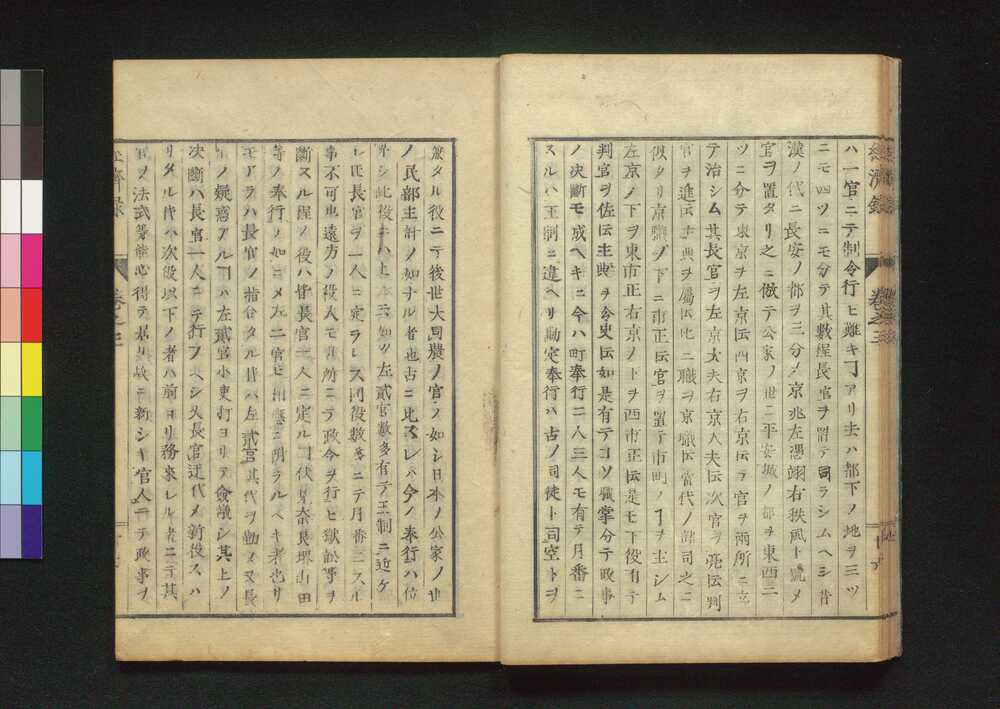 ハ一官ニテ制令行ヒ難キヿアリ夫ハ都下ノ地ヲ三ツ
ニモ四ツニモ分テ其數程長官ヲ置テ司ラシムヘシ昔
漢ノ代ニ長安ノ都ヲ三分メ京兆左馮翊右扶風ト號メ
官ヲ置タリ之ニ倣テ公家ノ世ニ平安城ノ都ヲ東西二
ツニ分テ東京ヲ左京伝西京ヲ右京伝テ官ヲ兩所ニ立
テ治シム其長官ヲ左京大夫右京大夫伝次官ヲ亮伝判
官ヲ進伝主典ヲ屬伝此二職ヲ京職伝當代ノ諸司之ニ
似タリ京職ノ下ニ市正伝官ヲ置テ市町ノヿヲ主シム
左京ノ下ヲ東市正右京ノ下ヲ西市正伝是モ下役有テ
判官ヲ佐伝主典ヲ令史伝如是有テコソ職掌分テ政事
ノ決斷モ成ヘキニ今ハ町奉行二人三人モ有テ月番ニ
スルハ王制ニ違ヘリ勘定奉行ハ古ノ司徒ト司空トヲ
經濟錄
卷之三
兼タル役ニテ後世大司農ノ官ノ如シ日本ノ公家ノ世
ノ民部主計ノ如ナル者也古ニ比スレハ今ノ奉行ハ位
卑シ此役ニハ上ニ云如ク左貳官數多有テ王制ニ近ケ
レ𪜈長官ヲ一人ニ定ラレス同役數多ニテ月番ニスル
事不可也遠方ノ役人モ其所ニテ政令ヲ行ヒ獄訟事ヲ
斷スル程ノ役ハ皆長官一人ニ定ルヿ伏見奈良堺山田
等ノ奉行ノ如ニメ左二官モ相應ニ附ラルヘキ者也サ
モアラハ長官ノ指合タル時ハ左貳官其代ヲ勤メ又長
官ノ疑惑アルヿハ左貳官小吏打ヨリテ僉議シ其上ノ
決斷ハ長官一人ニテ行フヘシ久長官迁代メ新役スハ
リタル時ハ次役以下ノ者ハ前ヨリ務來レル者ニテ其
官ヲ法式等能心得テ居リ故ニ新シキ官人ニテ政事ヲ
經濟錄
卷之三